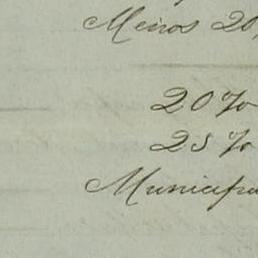 Menos 20
20 %
25 %